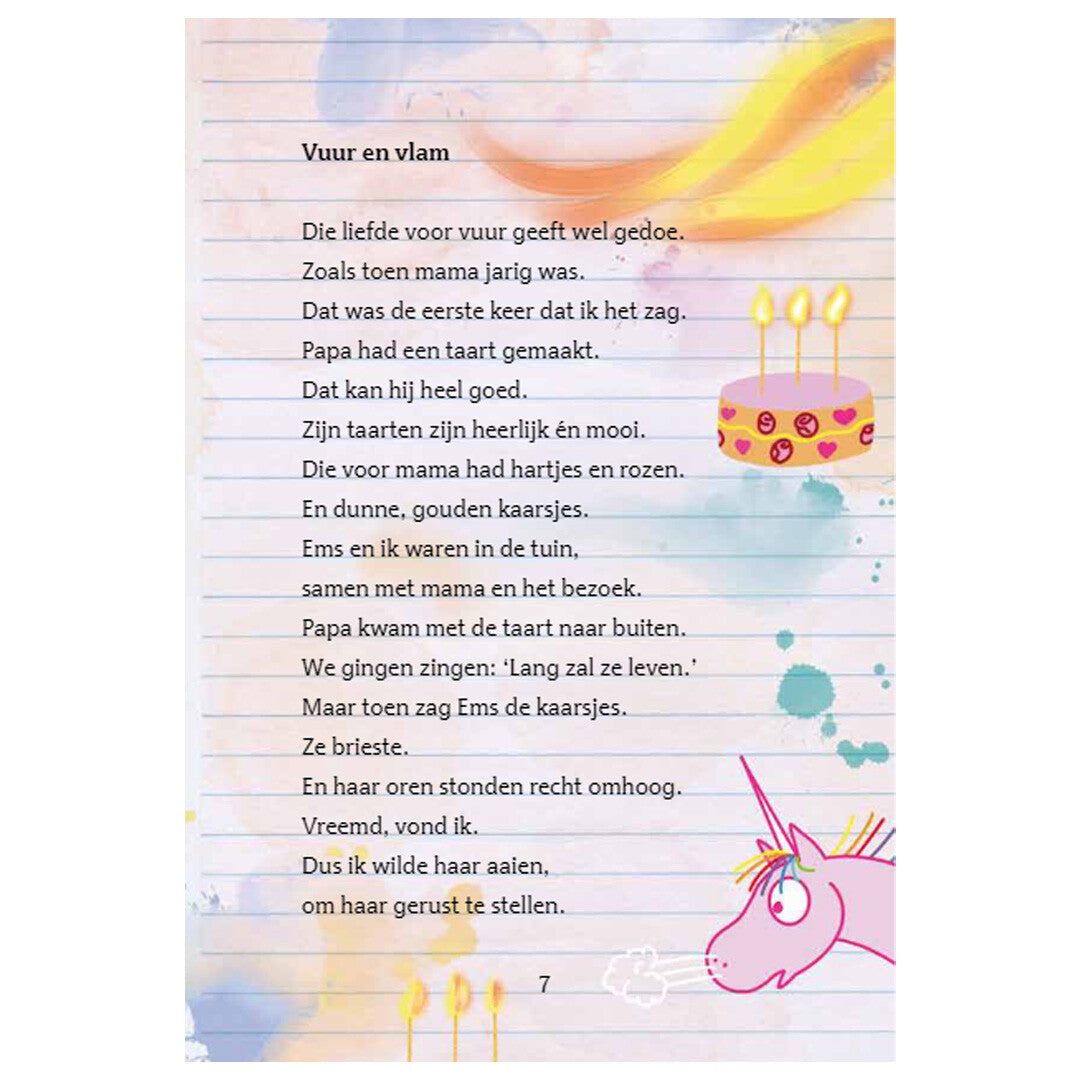 Vuur en vlam
Die liefde voor vuur geeft wel gedoe.
Zoals toen mama jarig was.
Dat was de eerste keer dat ik het zag.
Papa had een taart gemaakt.
Dat kan hij heel goed.
Zijn taarten zijn heerlijk én mooi.
Die voor mama had hartjes en rozen.
En dunne, gouden kaarsjes.
Ems en ik waren in de tuin,
samen met mama en het bezoek.
Papa kwam met de taart naar buiten.
We gingen zingen: ‘Lang zal ze leven.’
Maar toen zag Ems de kaarsjes.
Ze brieste.
En haar oren stonden recht omhoog.
Vreemd, vond ik.
Dus ik wilde haar aaien,
om haar gerust te stellen.
7